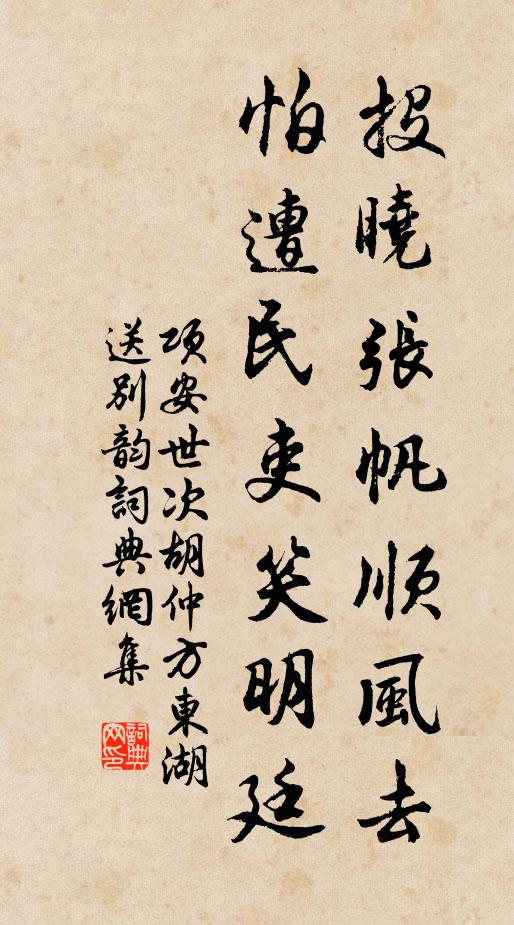 投曉張帆順風去
怕遭民吏笑明廷
項安世次胡仲方東湖
送別韵詞典網集
詞典網印